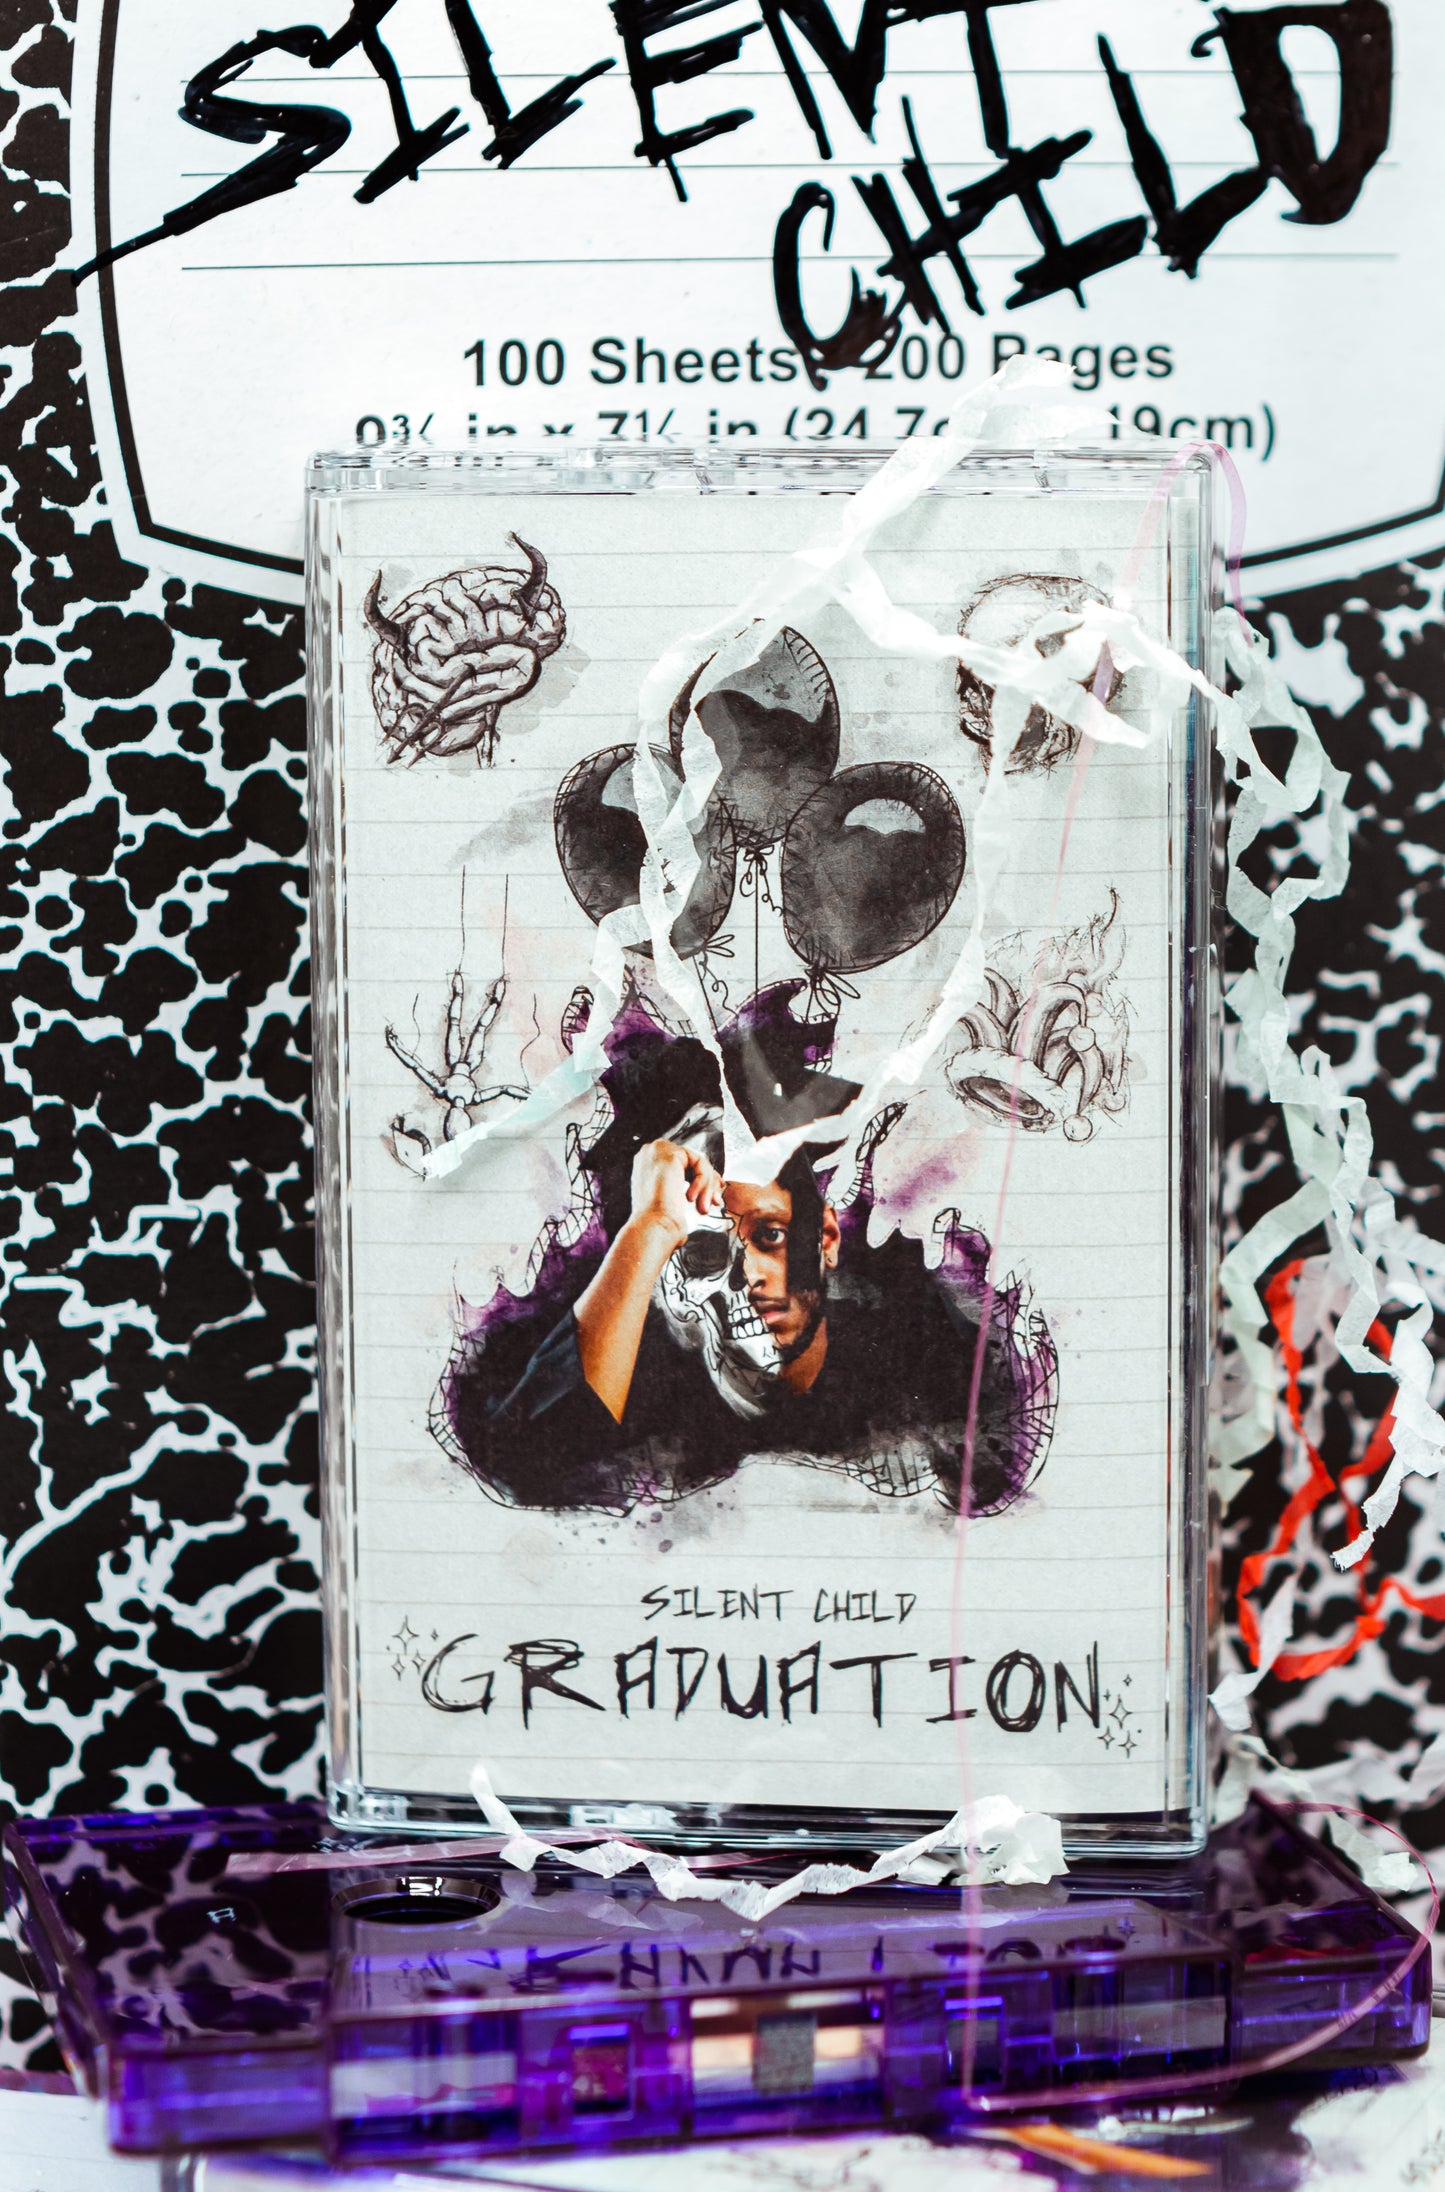 SILENT
CHILD
100 Sheets, 200 Pages
9¾ in x 7½ in (24.7c 19cm)
SILENT CHILD
GRADUATION